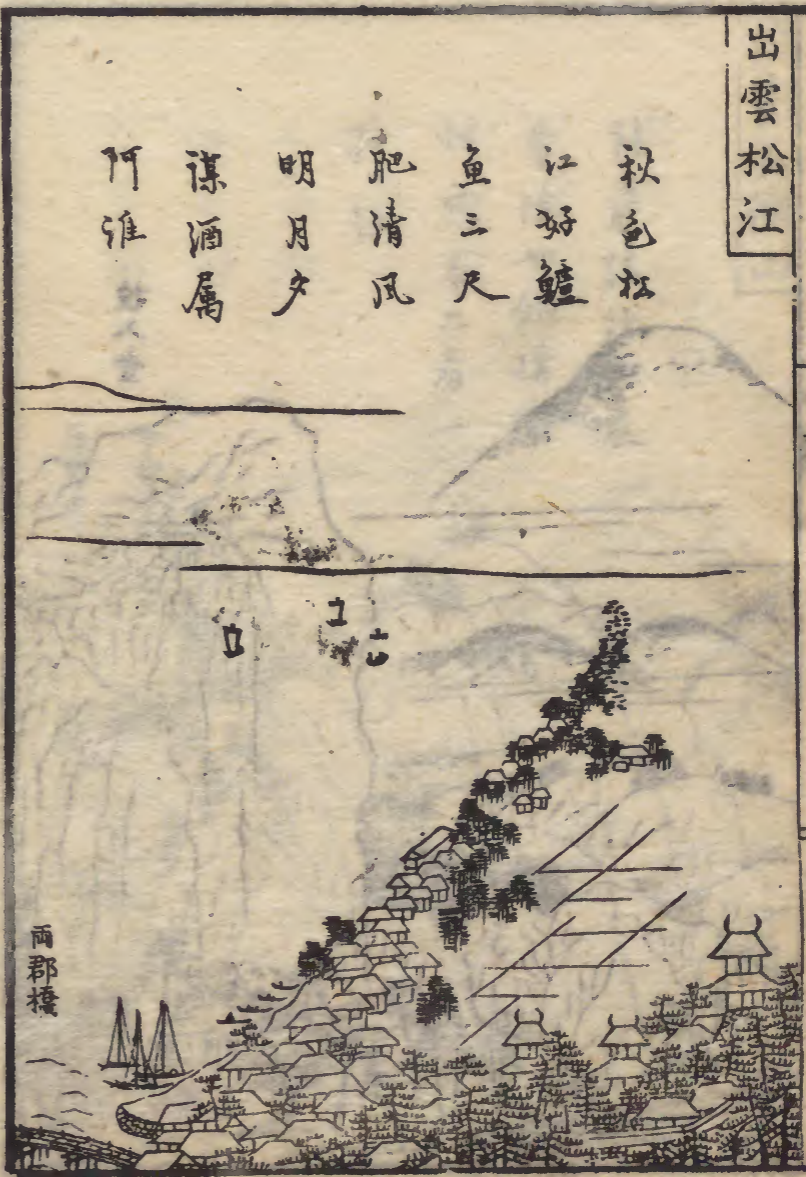 出雲松江
秋色松
江好鱸
魚三尺
肥清風
明月夕
謀酒属
阿誰
両郡橋